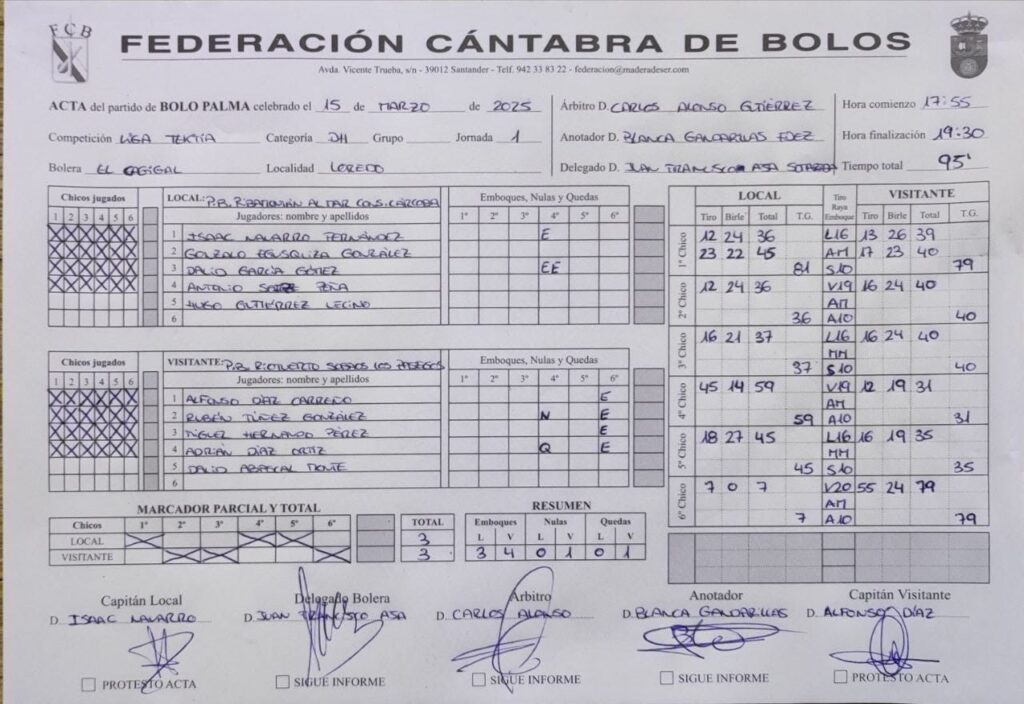 FCB
FEDERACIÓN CÁNTABRA DE BOLOS
Avda. Vicente Trueba, s/n - 39012 Santander - Telf. 942 33 83 22 - federacion@maderadeser.com
ACTA del partido de BOLO PALMA celebrado el 15 de MARZO de 2025
Competición LIGA TEKTIA Categoría DH Grupo Jornada 1
Bolera EL CAGIGAL Localidad LOREDO
Árbitro D. CARLOS ALONSO GUTIÉRREZ
Anotador D. BLANCA GANDARILLAS FDEZ
Delegado D. JUAN FRANCISCO ASA
Hora comienzo 17:55
Hora finalización 19:30
Tiempo total 95'
Chicos jugados
1 2 3 4 5 6
LOCAL: P.B. RIBAMONTÁN AL MAR CONS. CÁRCOBA
Jugadores: nombre y apellidos
Emboques, Nulas y Quedas
1º 2º 3º 4º 5º 6º
1 ISAAC NAVARRO FERNÁNDEZ E
2 GONZALO EGUSQUIZA GONZÁLEZ
3 DALIO GARCÍA GÓMEZ EE
4 ANTONIO PEÑA
5 HUGO GUTIÉRREZ
6
Chicos jugados
1 2 3 4 5 6
VISITANTE: P.B. RIOTUERTO SOBAOS LOS PASIEGOS
Jugadores: nombre y apellidos
Emboques, Nulas y Quedas
1º 2º 3º 4º 5º 6º
1 ALFONSO DÍAZ CARREÑO E
2 RUBÉN TÚÑEZ GONZÁLEZ N E
3 MIGUEL HERNANDO PÉREZ E
4 ADRIÁN DÍAZ ORTIZ Q E
5 DALIO ABASCAL MONTE
6
LOCAL Tiro Raya Emboque VISITANTE
Tiro Birle Total T.G. Tiro Birle Total T.G.
1º Chico
12 24 36 L16 13 26 39
23 22 45 AM 17 23 40
81 S10 79
2º Chico
12 24 36 V19 16 24 40
AM
36 A10 40
3º Chico
16 21 37 L16 16 24 40
MM
37 S10 40
4º Chico
45 14 59 V19 12 19 31
AM
59 A10 31
5º Chico
18 27 45 L16 16 19 35
MM
45 S10 35
6º Chico
7 0 7 V20 55 24 79
AM
7 A10 79
MARCADOR PARCIAL Y TOTAL
Chicos 1º 2º 3º 4º 5º 6º TOTAL
LOCAL 3
VISITANTE 3
RESUMEN
Emboques Nulas Quedas
L V L V L V
3 4 0 1 0 1
Capitán Local
D. ISAAC NAVARRO
Delegado Bolera
D. JUAN FRANCISCO ASA
Árbitro
D. CARLOS ALONSO
Anotador
D. BLANCA GANDARILLAS
Capitán Visitante
D. ALFONSO DÍAZ
PROTESTO ACTA
SIGUE INFORME
SIGUE INFORME
SIGUE INFORME
PROTESTO ACTA